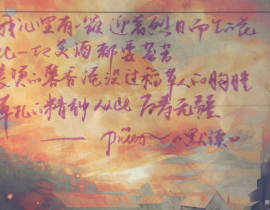 我心里有一簇 迎着烈日而生的花
比一切美酒都要芬芳
滚烫的馨香淹没过稻草人的胸膛
草扎的精神从此万寿无疆
—— priest《默读》